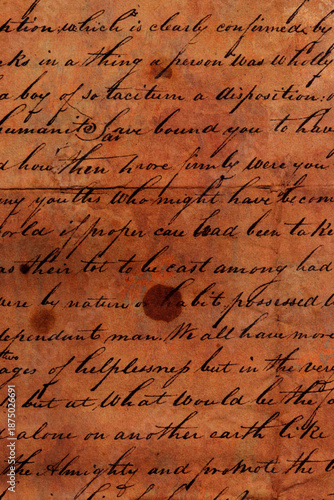 ition which is clearly confirmed by
cks in a thing a person was wholly
a boy of so taciturn a disposition. o
humanity Law bound you to hav
d how then more firmly were you
ny youths who might have becom
orld if proper care had been take
as their lot to be cast among had
were by nature or habit possessed
dependant man. We all have more
two
ages of helplessness but in the ver
but at What would be the
alone on another earth like
the Almighty and promote the